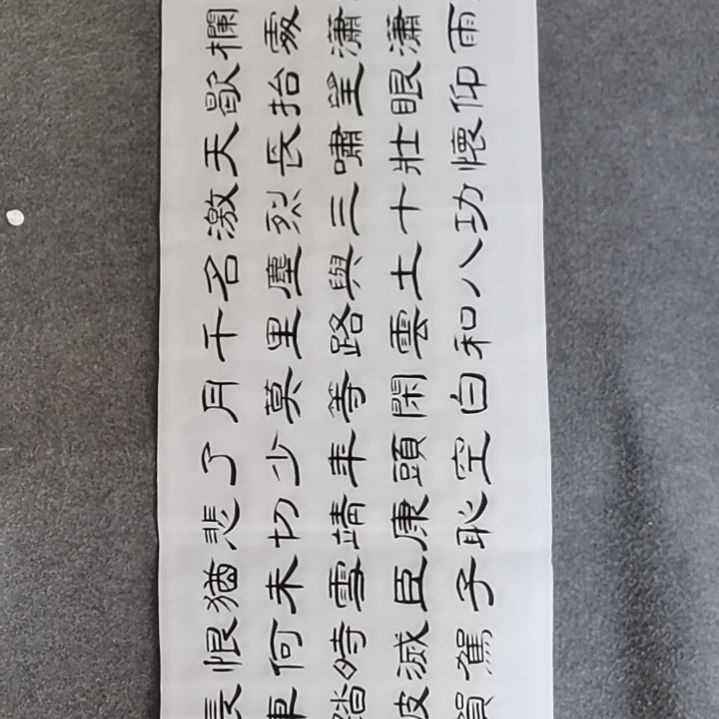 欄處瀟瀟雨
歇抬望眼仰
天長嘯壯懷
激烈三十功
名塵與土八
千里路雲和
月莫等閑白
了少年頭空
悲切靖康恥
猶未雪臣子
恨何時滅駕
長車踏破賀